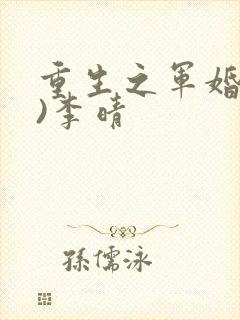 重生之军婚
)李晴
孫儒泳